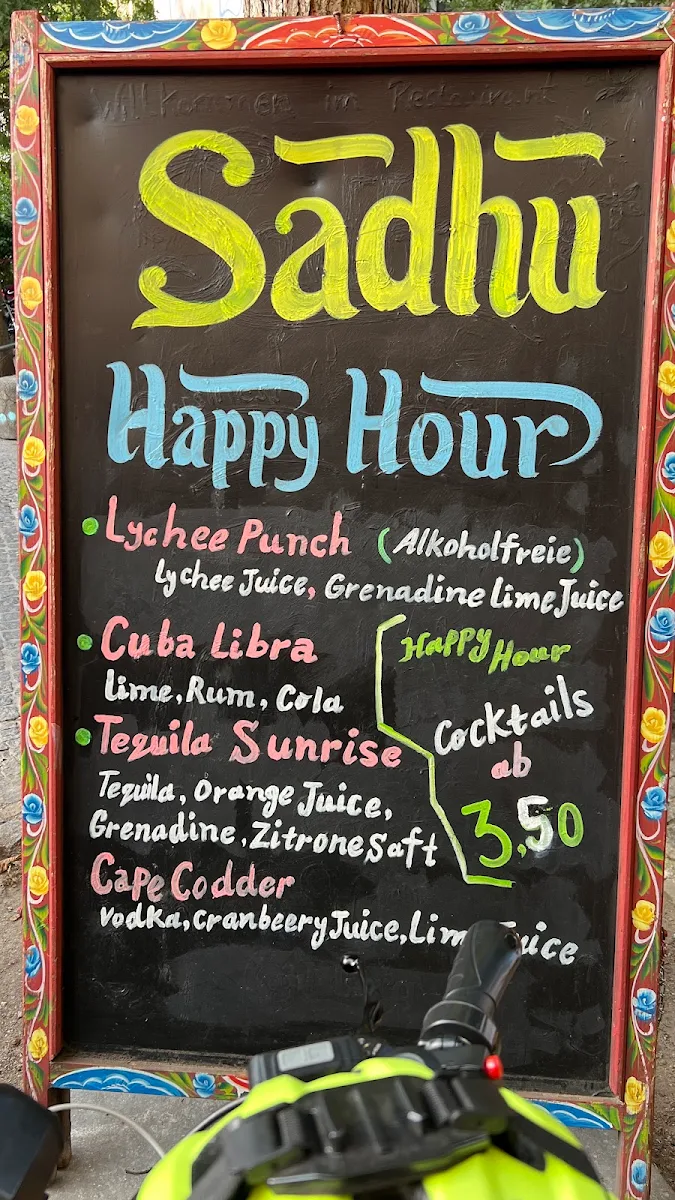 Willkommen im Restaurant
Sadhu
Happy Hour
Lychee Punch (Alkoholfreie)
Lychee Juice, Grenadine Lime Juice
Cuba Libra
Lime, Rum, Cola
Tequila Sunrise
Tequila, Orange Juice,
Grenadine, Zitrone Saft
Cape Codder
Vodka, Cranbeery Juice, Lim Juice
Happy Hour
Cocktails
ab
3,50